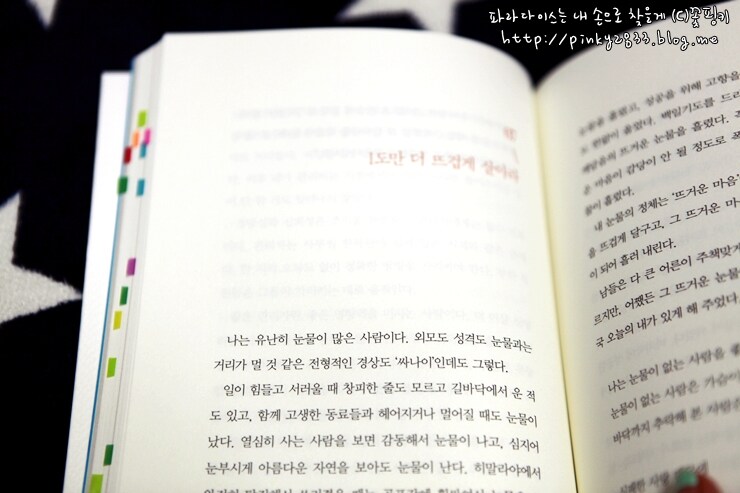 파라다이스는 내 손으로 찾을게 (C)꽃핑키
http://pinky2833.blog.me
1도만 더 뜨겁게 살아라
나는 유난히 눈물이 많은 사람이다. 외모도 성격도 눈물과는
거리가 멀 것 같은 전형적인 경상도 ‘싸나이’인데도 그렇다.
일이 힘들고 서러울 때 창피한 줄도 모르고 길바닥에서 운 적
도 있고, 함께 고생한 동료들과 헤어지거나 멀어질 때도 눈물이
났다. 열심히 사는 사람을 보면 감동해서 눈물이 나고, 심지어
눈부시게 아름다운 자연을 보아도 눈물이 난다. 히말라야에서
흘리고, 성공을 위해 고향을
도 한없이 흘렸다. 백일기도를 드리
뜨거운 눈물을 흘렸다.
운 마음이 감당이 안 될 정도로 폭
물이 흘렀다.
내 눈물의 정체는 ‘뜨거운 마음’
을 뜨겁게 달구고, 그 뜨거운 마
이 되어 흘러 내린다.
남들은 다 큰 어른이 주책맞게
르지만, 어쨌든 그 뜨거운 눈물
국 오늘의 내가 있게 해 주었다.
나는 눈물이 없는 사람을 좋
눈물이 없는 사람은 가슴이
바닥까지 추락해 본 사람